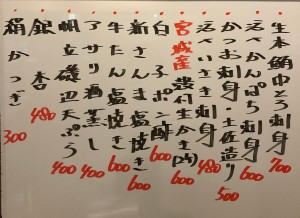 生本鮪中とろ刺身 700
活〆かんぱち刺身 600
かつお刺身 土佐造り 500
活〆へいさき刺身 480
宮城産 殻付生かき(2ヶ) 600
白子ポン酢 600
新さんま塩焼き 600
牛たん塩焼き 600
アサリ酒蒸し 400
帆立磯辺天ぷら 400
銀杏 480
絹かつぎ 300